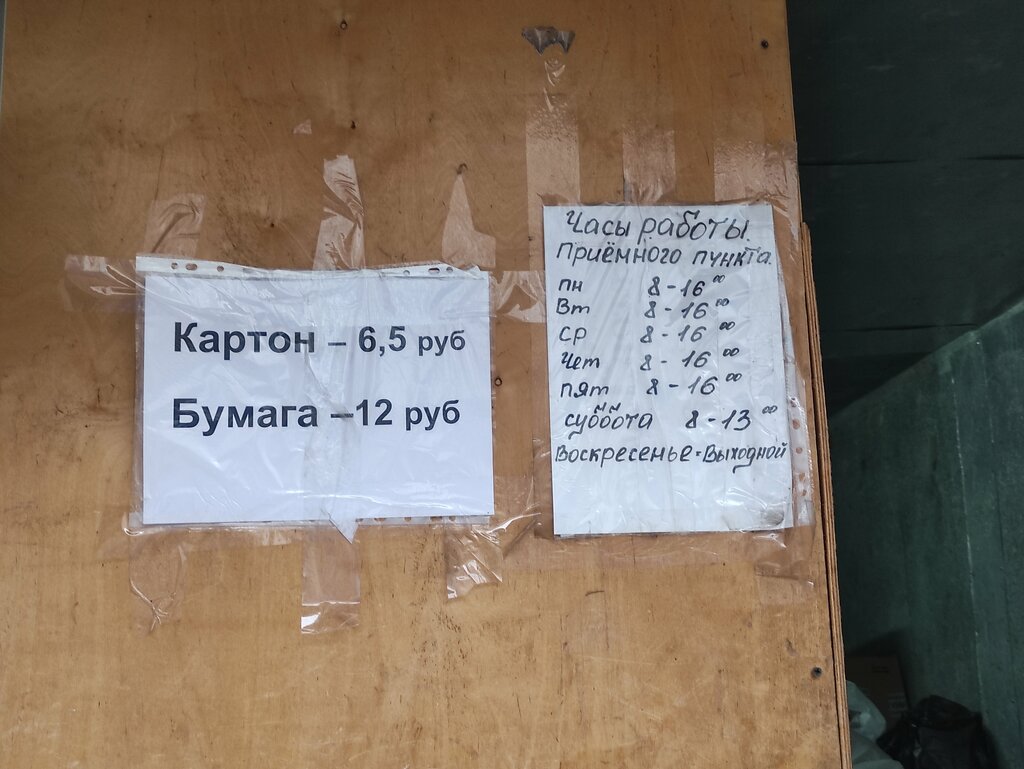 Картон – 6,5 руб
Бумага –12 руб
Часы работы.
Приёмного пункта.
пн 8-16⁰⁰
Вт 8-16⁰⁰
Ср 8-16⁰⁰
Чет 8-16⁰⁰
пят 8-16⁰⁰
суббота 8-13⁰⁰
Воскресенье-Выходной